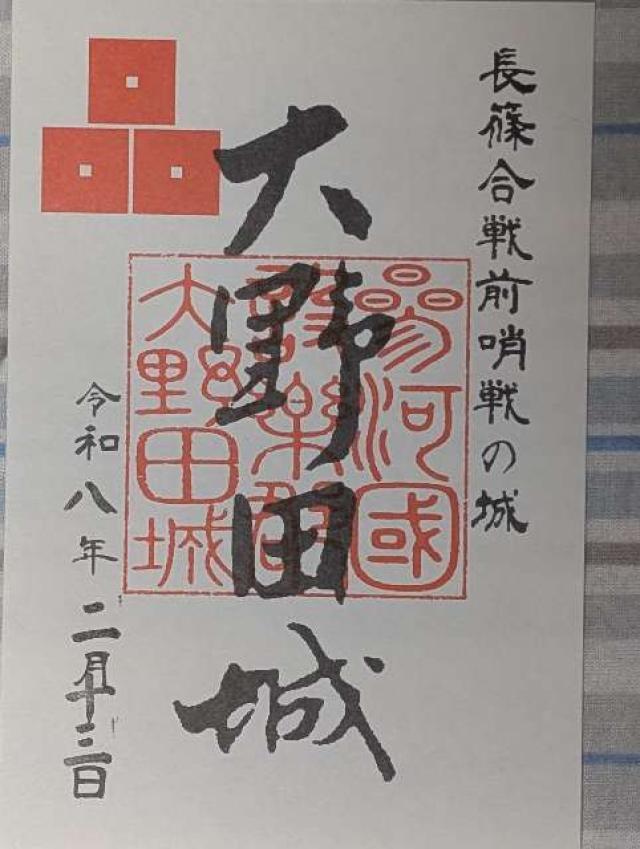 長篠合戦前哨戦の城
大野田城
參河國
設樂郡
大野田城
令和八年二月十三日